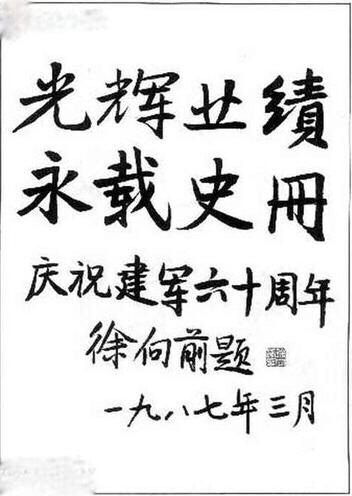 光辉业績
永载史冊
庆祝建军六十周年
徐向前题
一九八七年三月